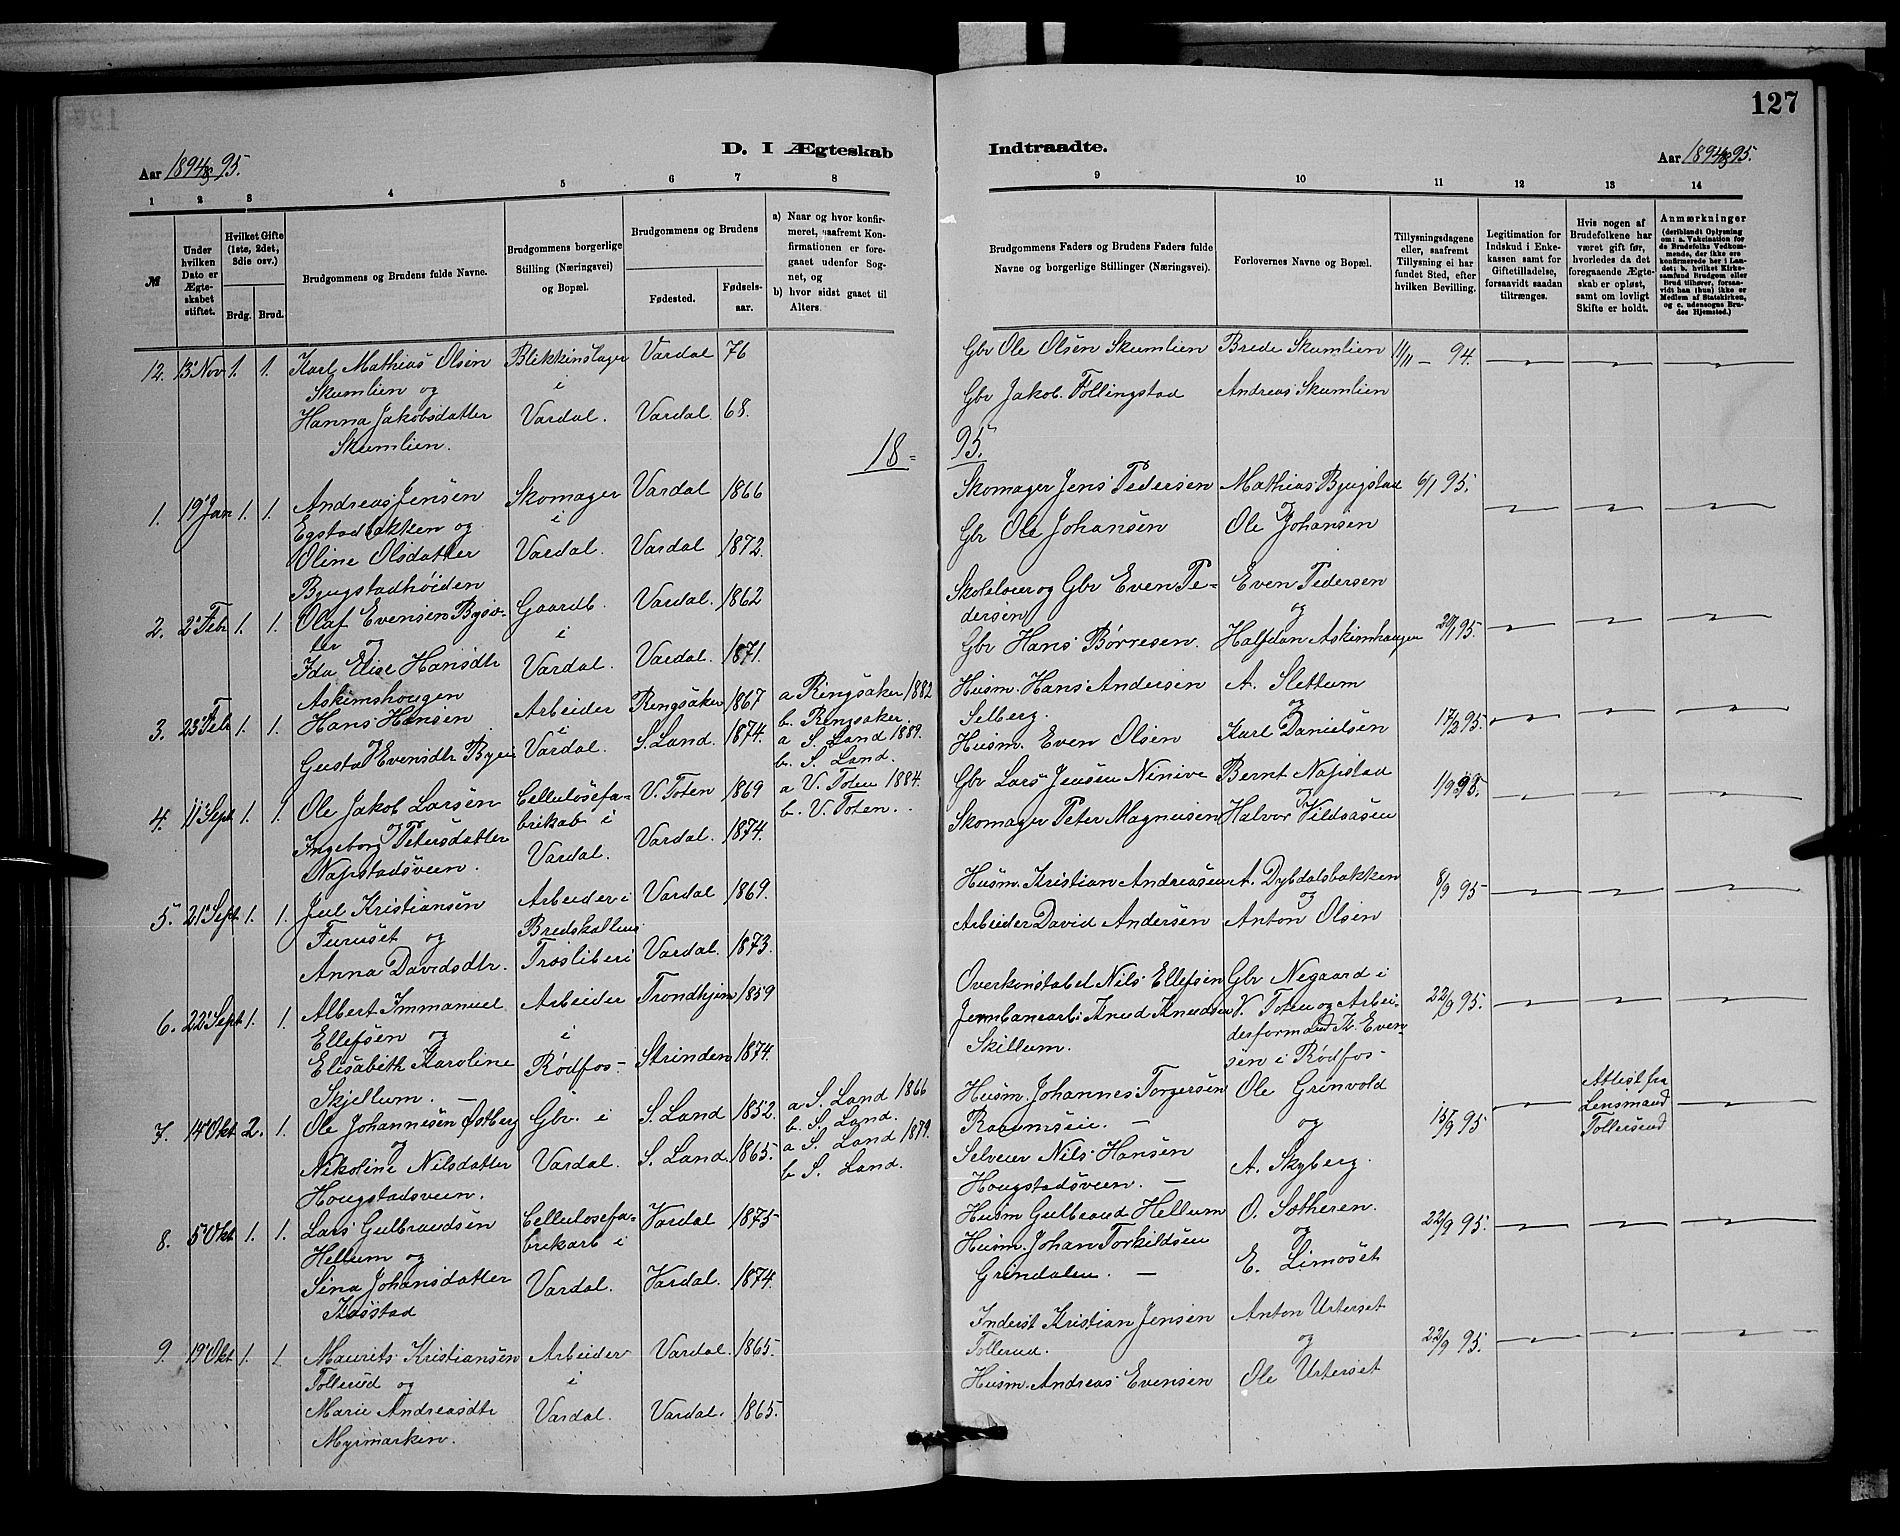 127
D. I Ægteskab Indtraadte.
Aar 1894 & 95.
Aar 1894 & 95.
1 2 3 4 5 6 7 8
9 10 11 12 13 14
№
Under hvilken Dato er Ægteskabet stiftet.
Hvilket Gifte (1ste, 2det, 3die osv.)
Brdg. Brud.
Brudgommens og Brudens fulde Navne.
Brudgommens borgerlige Stilling (Næringsvei) og Bopæl.
Brudgommens og Brudens
Fødested.
Fødselsaar.
a) Naar og hvor konfirmeret, saafremt Konfirmationen er foregaaet udenfor Sognet, og
b) hvor sidst gaaet til Alters.
Brudgommens Faders og Brudens Faders fulde Navne og borgerlige Stillinger (Næringsvei).
Forlovernes Navne og Bopæl.
Tillysningsdagene eller, saafremt Tillysning ei har fundet Sted, efter hvilken Bevilling.
Legitimation for Indskud i Enkekassen samt for Giftetilladelse, forsaavidt saadan tiltrænges.
Hvis nogen af Brudefolkene har været gift før, hvorledes da det foregaaende Ægteskab er opløst, samt om lovligt Skifte er holdt.
Anmærkninger (deriblandt Oplysning om: a. Vakcination for de Brudefolks Vedkommende, der ikke ere konfirmerede her i Landet; b. hvilket Kirkesamfund Brudgom eller Brud tilhører, forsaavidt han (hun) ikke er Medlem af Statskirken, og c. udensogns Brudes Hjemsted.)
12. 13 Nov 1. 1. Karl Mathias Olsen Blikkinslager Vardal 76
Skumlien og i
Hanna Jakobsdatter Vardal. Vardal 68.
Skumlien.
Gbr Ole Olsen Skumlien Brede Skumlien 11/11 - 94.
Gbr Jakob Föllingstad Andreas Skumlien
18 = 95.
1. 19 Jan 1. 1. Andreas Jensen Skomager Vardal 1866
Egstadbakken og i
Oline Olsdatter Vardal. Vardal 1872.
Bjugstadhöiden
Skomager Jens Pedersen Mathias Bjugstad 6/1 95.
og
Gbr Ole Johansen Ole Johansen
2. 2 Febr 1. 1. Olaf Evensen Bysvel- Gaardb. Vardal. 1862
ler og i
Ida Elise Hansdtr Vardal. Vardal. 1871.
Askimshougen
Skolelærer og Gbr Even Pe- Even Pedersen
dersen og
Gbr Hans Børresen Halfdan Askimhaugen 20/1 95.
3. 23 Febr 1. 1. Hans Hansen Arbeider Ringsaker 1867 a Ringsaker 1882
og i b. Ringsaker.
Gusta Evensdtr Vardal. S. Land. 1874. a S. Land 1889.
b. S. Land.
Husm. Hans Andersen A. Slettum
Selberg. og
Husm. Even Olsen Karl Danielsen 17/2 95.
4. 11 Sept 1. 1. Ole Jakob Larsen Cellulosefa- V. Toten 1869 a V. Toten 1884.
og brikab i b. V. Toten.
Ingeborg Petersdatter Vardal. Vardal. 1874.
Napstadsveen.
Gbr Lars Jensen Ninive Bernt Napstad 1/9 95.
og
Skomager Peter Magnusen Halvor Vildsaasen
5. 21 Sept 1. 1. Jul Kristiansen Arbeider i Vardal 1869.
Furuset og Bredskallens
Anna Davidsdtr. Træsliberi Vardal. 1873.
Husm. Kristian Andreasen A. Dybdalsbakken 8/9 95
og
Arbeider David Andersen Anton Olsen
6. 22 Sept 1. 1. Albert Immanuel Arbeider Trondhjem 1859
Ellefsen og i
Elisabeth Karoline Rødfos - Strinden 1874.
Skjellum. —
Overkonstabel Nils Ellefsen Gbr Negaard i
Jernbanearb. Knud Knudsen V. Toten og Arbei- 22/9 95.
Skillum. derformand K. Even-
sen i Rødfos -
7. 14 Okt 2. 1. Ole Johannesen Østberg Gbr. i S. Land 1852. a S. Land 1866
og b. S. Land.
Nikoline Nilsdatter Vardal. S. Land. 1865. a S. Land 1879.
Hougstadsveen. b S. Land.
Husm. Johannes Torgersen Ole Grinvold
Raaumseie. — og 15/9 95
Selveier Nils Hansen A. Skyberg.
Hougstadsveen. —
Attest fra
Lensmand
Tollersrud
8. 5 Okt 1. 1. Lars Gulbrandsen Cellulosefa- Vardal 1875
Hellum og brikarb i
Sina Johansdatter Vardal. Vardal. 1874.
Husm Gulbrand Hellum O. Sætheren. 22/9 95.
Husm. Johan Torkildsen og
Grindalen. — E. Limoset
9. 19 Okt 1. 1. Maurits Kristiansen Arbeider Vardal. 1865.
Tollerud og i
Marie Andreasdtr Vardal. Vardal. 1865.
Myrmarken.
Inderst Kristian Jensen Anton Urterset
Tollerud. og 22/9 95.
Husm. Andreas Evensen Ole Urterset